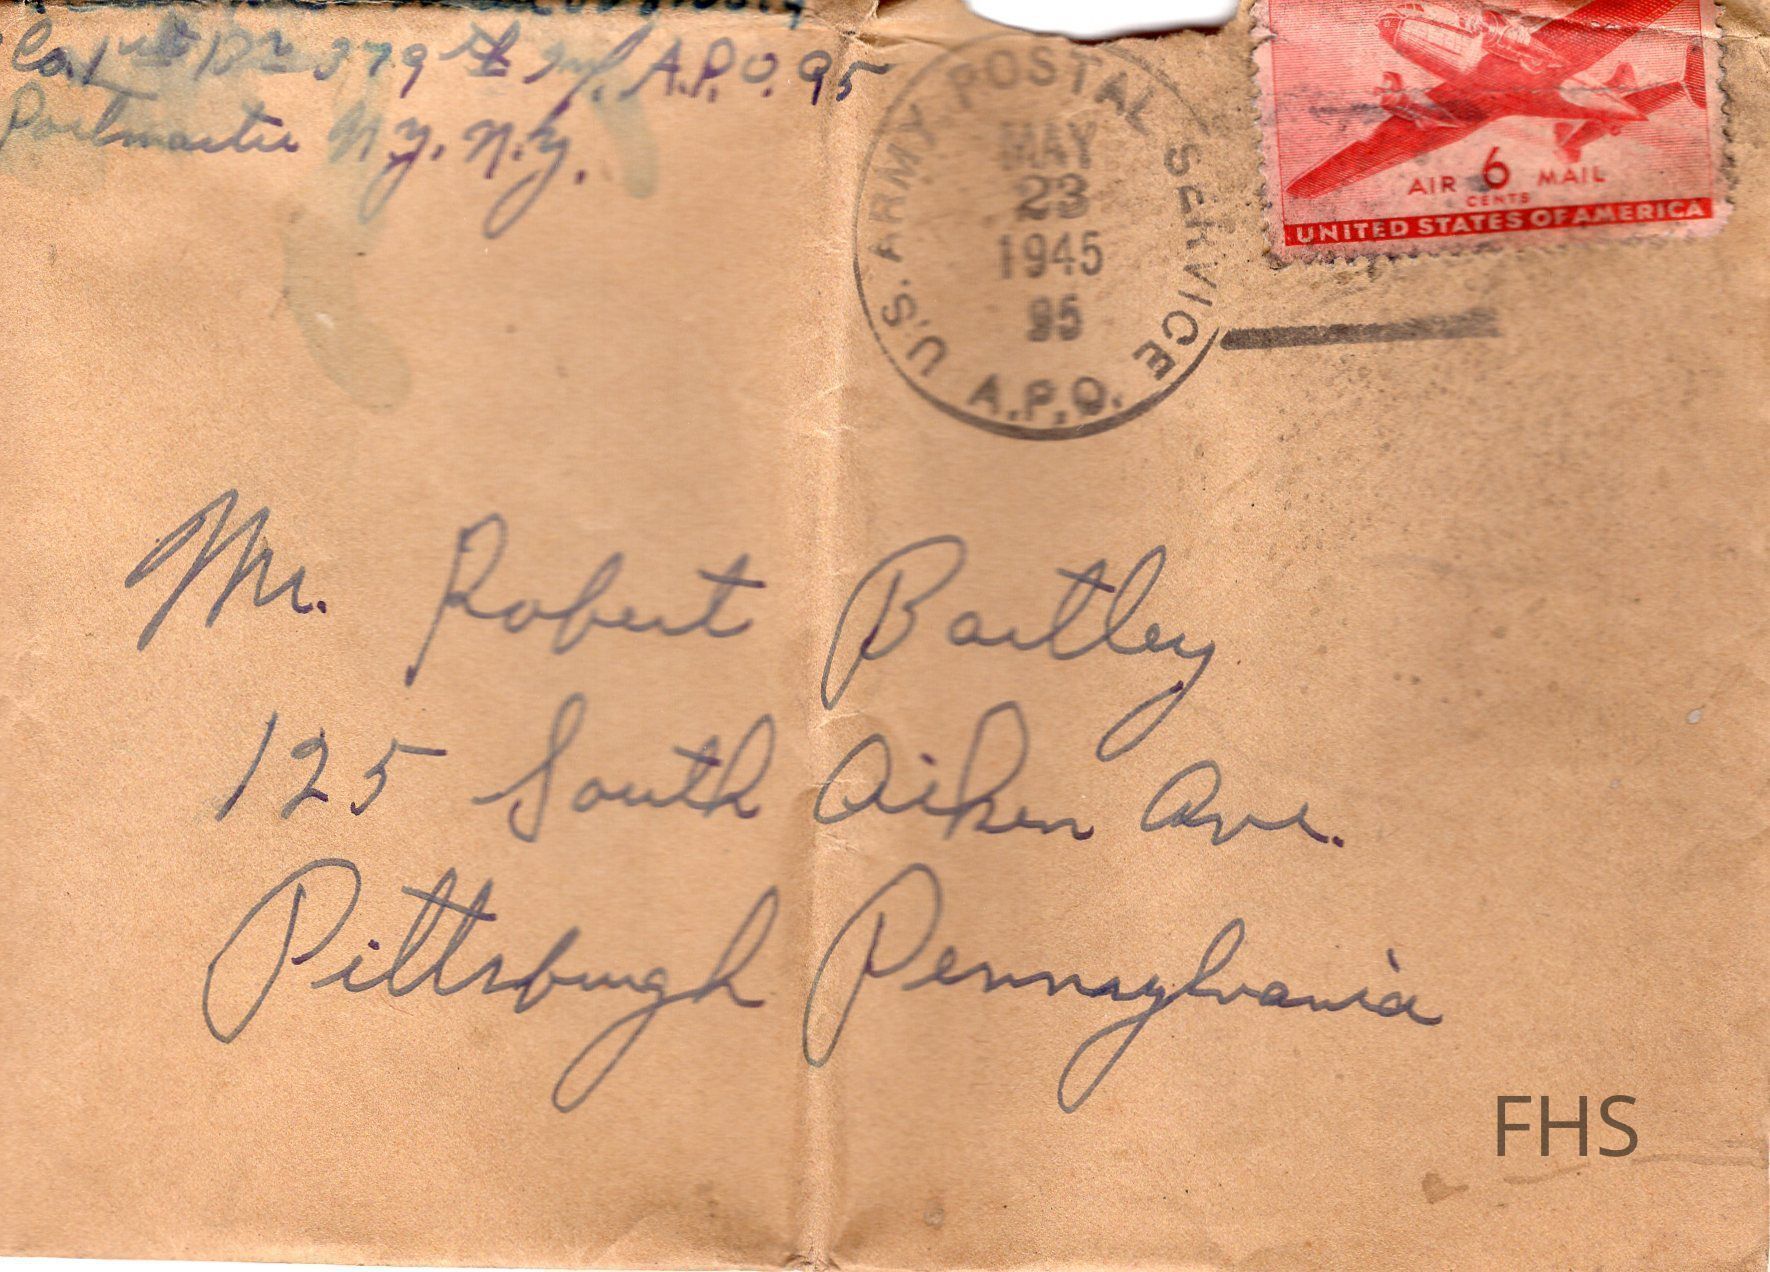 Co. 1st Bn 379th Inf. A.P.O. 95
Postmaster N.Y. N.Y.
U.S. ARMY POSTAL SERVICE
MAY
23
1945
95
A.P.O.
6
AIR MAIL
CENTS
UNITED STATES OF AMERICA
Mr. Robert Bartley
125 South Aiken Ave.
Pittsburgh Pennsylvania
FHS